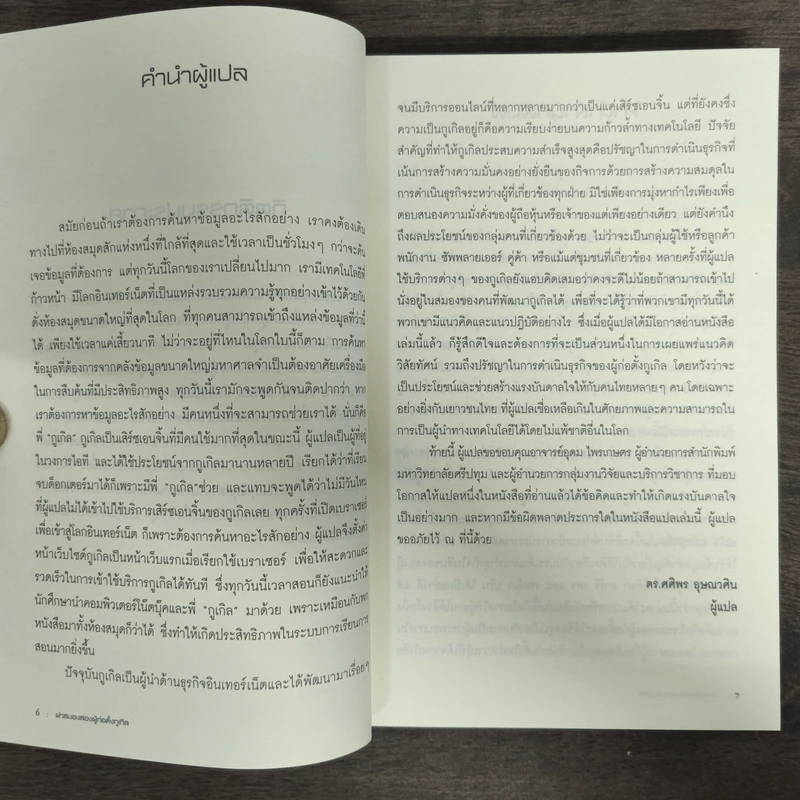 คำนำผู้แปล
สมัยก่อนถ้าเราต้องการค้นหาข้อมูลอะไรสักอย่าง เราคงต้องเดิน
ทางไปที่ห้องสมุดสักแห่งหนึ่งที่ใกล้ที่สุดและใช้เวลาเป็นชั่วโมงๆ กว่าจะค้น
เจอข้อมูลที่ต้องการ แต่ทุกวันนี้โลกของเราเปลี่ยนไปมาก เรามีเทคโนโลยีที่
ก้าวหน้า มีโลกอินเทอร์เน็ตที่เป็นแหล่งรวบรวมความรู้ทุกอย่างเข้าไว้ด้วยกัน
ดั่งห้องสมุดขนาดใหญ่ที่สุดในโลก ที่ทุกคนสามารถเข้าถึงแหล่งข้อมูลที่ว่านี้
ได้ เพียงใช้เวลาแค่เสี้ยวนาที ไม่ว่าจะอยู่ที่ไหนในโลกใบนี้ก็ตาม การค้นหา
ข้อมูลที่ต้องการจากคลังข้อมูลขนาดใหญ่มหาศาลจำเป็นต้องอาศัยเครื่องมือ
ในการสืบค้นที่มีประสิทธิภาพสูง ทุกวันนี้เรามักจะพูดกันจนติดปากว่า หาก
เราต้องการหาข้อมูลอะไรสักอย่าง มีคนหนึ่งที่จะสามารถช่วยเราได้ นั่นก็คือ
พี่ "กูเกิล" กูเกิลเป็นเสิร์ชเอนจิ้นที่มีคนใช้มากที่สุดในขณะนี้ ผู้แปลเป็นผู้ที่อยู่
ในวงการไอที และได้ใช้ประโยชน์จากกูเกิลมานานหลายปี เรียกได้ว่าที่เรียน
จบด็อกเตอร์มาได้ก็เพราะมีพี่ "กูเกิล"ช่วย และแทบจะพูดได้ว่าไม่มีวันไหน
ที่ผู้แปลไม่ได้เข้าไปใช้บริการเสิร์ชเอนจิ้นของกูเกิลเลย ทุกครั้งที่เปิดเบราเซอร์
เพื่อเข้าสู่โลกอินเทอร์เน็ต ก็เพราะต้องการค้นหาอะไรสักอย่าง ผู้แปลจึงตั้งค่า
หน้าเว็บไซต์กูเกิลเป็นหน้าเว็บแรกเมื่อเรียกใช้เบราเซอร์ เพื่อให้สะดวกและ
รวดเร็วในการเข้าใช้บริการกูเกิลได้ทันที ซึ่งทุกวันนี้เวลาสอนก็ยังแนะนำให้
นักศึกษานำคอมพิวเตอร์โน๊ตบุ๊คและพี่ "กูเกิล" มาด้วย เพราะเหมือนกับพก
หนังสือมาทั้งห้องสมุดก็ว่าได้ ซึ่งทำให้เกิดประสิทธิภาพในระบบการเรียนการ
สอนมากยิ่งขึ้น
ปัจจุบันกูเกิลเป็นผู้นำด้านธุรกิจอินเทอร์เน็ตและได้พัฒนามาเรื่อยๆ
6 : ผ่าสมองสองผู้ก่อตั้งกูเกิล
จนมีบริการออนไลน์ที่หลากหลายมากกว่าเป็นแค่เสิร์ซเอนจิ้น แต่ที่ยังคงซึ่ง
ความเป็นกูเกิลอยู่ก็คือความเรียบง่ายบนความก้าวล้ำทางเทคโนโลยี ปัจจัย
สำคัญที่ทำให้กูเกิลประสบความสำเร็จสูงสุดคือปรัชญาในการดำเนินธุรกิจที่
เน้นการสร้างความมั่นคงอย่างยั่งยืนของกิจการด้วยการสร้างความสมดุลใน
การดำเนินธุรกิจระหว่างผู้ที่เกี่ยวข้องทุกฝ่าย มิใช่เพียงการมุ่งหากำไรเพียงเพื่อ
ตอบสนองความมั่งคั่งของผู้ถือหุ้นหรือเจ้าของแต่เพียงอย่างเดียว แต่ยังคำนึง
ถึงผลประโยชน์ของกลุ่มคนที่เกี่ยวข้องด้วย ไม่ว่าจะเป็นกลุ่มผู้ใช้หรือลูกค้า
พนักงาน ซัพพลายเออร์ คู่ค้า หรือแม้แต่ชุมชนที่เกี่ยวข้อง หลายครั้งที่ผู้แปล
ใช้บริการต่างๆ ของกูเกิลยังแอบคิดเสมอว่าคงจะดีไม่น้อยถ้าสามารถเข้าไป
นั่งอยู่ในสมองของคนที่พัฒนากูเกิลได้ เพื่อที่จะได้รู้ว่าที่พวกเขามีทุกวันนี้ได้
พวกเขามีแนวคิดและแนวปฏิบัติอย่างไร ซึ่งเมื่อผู้แปลได้มีโอกาสอ่านหนังสือ
เล่มนี้แล้ว ก็รู้สึกดีใจและต้องการที่จะเป็นส่วนหนึ่งในการเผยแพร่แนวคิด
วิสัยทัศน์ รวมถึงปรัชญาในการดำเนินธุรกิจของผู้ก่อตั้งกูเกิล โดยหวังว่าจะ
เป็นประโยชน์และช่วยสร้างแรงบันดาลใจให้กับคนไทยหลายๆ คน โดยเฉพาะ
อย่างยิ่งกับเยาวชนไทย ที่ผู้แปลเชื่อเหลือเกินในศักยภาพและความสามารถใน
การเป็นผู้นำทางเทคโนโลยีได้โดยไม่แพ้ชาติอื่นในโลก
ท้ายนี้ ผู้แปลขอขอบคุณอาจารย์อุดม ไพรเกษตร ผู้อำนวยการสำนักพิมพ์
มหาวิทยาลัยศรีปทุม และผู้อำนวยการกลุ่มงานวิจัยและบริการวิชาการ ที่มอบ
โอกาสให้แปลหนึ่งในหนังสือที่อ่านแล้วได้ข้อคิดและทำให้เกิดแรงบันดาลใจ
เป็นอย่างมาก และหากมีข้อผิดพลาดประการใดในหนังสือแปลเล่มนี้ ผู้แปล
ขออภัยไว้ ณ ที่นี้ด้วย
ดร.ศศิพร อุษณวศิน
ผู้แปล
7